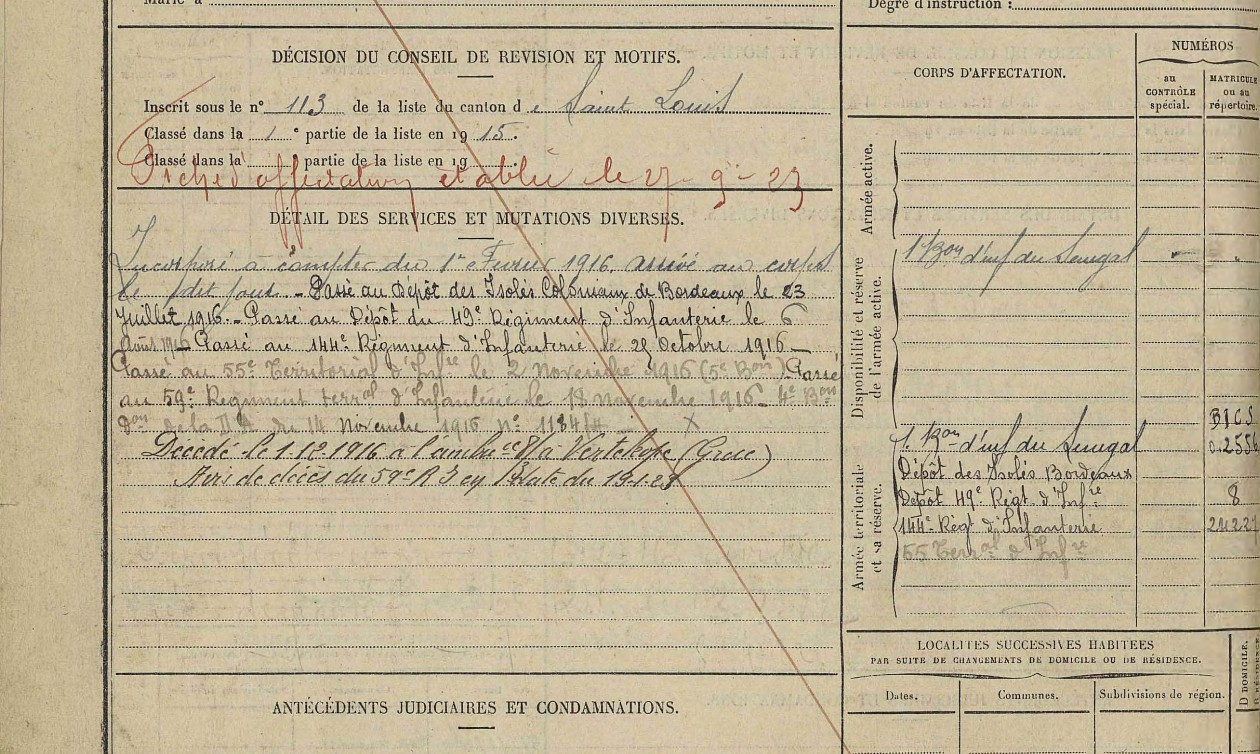 Degré d'instruction :
DÉCISION DU CONSEIL DE REVISION ET MOTIFS.
Inscrit sous le n° 113 de la liste du canton de Saint Louis
Classé dans la 1e partie de la liste en 1915.
Classé dans la partie de la liste en 19 .
d'affectation établie le 27 9 23
DÉTAIL DES SERVICES ET MUTATIONS DIVERSES.
Incorporé à compter du 1er Fevrier 1916, arrivé au corps
le dit jour - Passé au Dépôt des Isolés Coloniaux de Bordeaux le 23
Juillet 1916. - Passé au Dépôt du 49e Régiment d'Infanterie le 6
Août 1916 - Passé au 144e Régiment d'Infanterie le 29 Octobre 1916 -
Passé au 55e Territorial d'Infie le 2 Novembre 1916 (5e Bon) Passé
au 59e Regiment terral d'Infanterie le 18 novembre 1916 - 4e Bon
Don de la du 14 Novembre 1916 n° 1184/4 - X
Décédé le 1.12.1916 à l'ambce 8/ à Vertekope (Grèce)
Avis de décès du 59e R I en date du
ANTÉCÉDENTS JUDICIAIRES ET CONDAMNATIONS.
CORPS D'AFFECTATION.
NUMÉROS
au CONTRÔLE spécial.
MATRICULE ou au répertoire.
Armée active.
Disponibilité et réserve de l'armée active.
1 Bon d'inf du Senegal " "
Armée territoriale et sa réserve.
BICS
1 Bon d'inf du Senegal 0.2556
Dépôt des Isolés Bordeaux
Dépôt 49e Régt d'Infie 8
144e Régt d'Infanterie
55 Terral d'Infie
LOCALITES SUCCESSIVES HABITEES
PAR SUITE DE CHANGEMENTS DE DOMICILE OU DE RÉSIDENCE.
Dates.
Communes.
Subdivisions de région.
D DOMICILE.